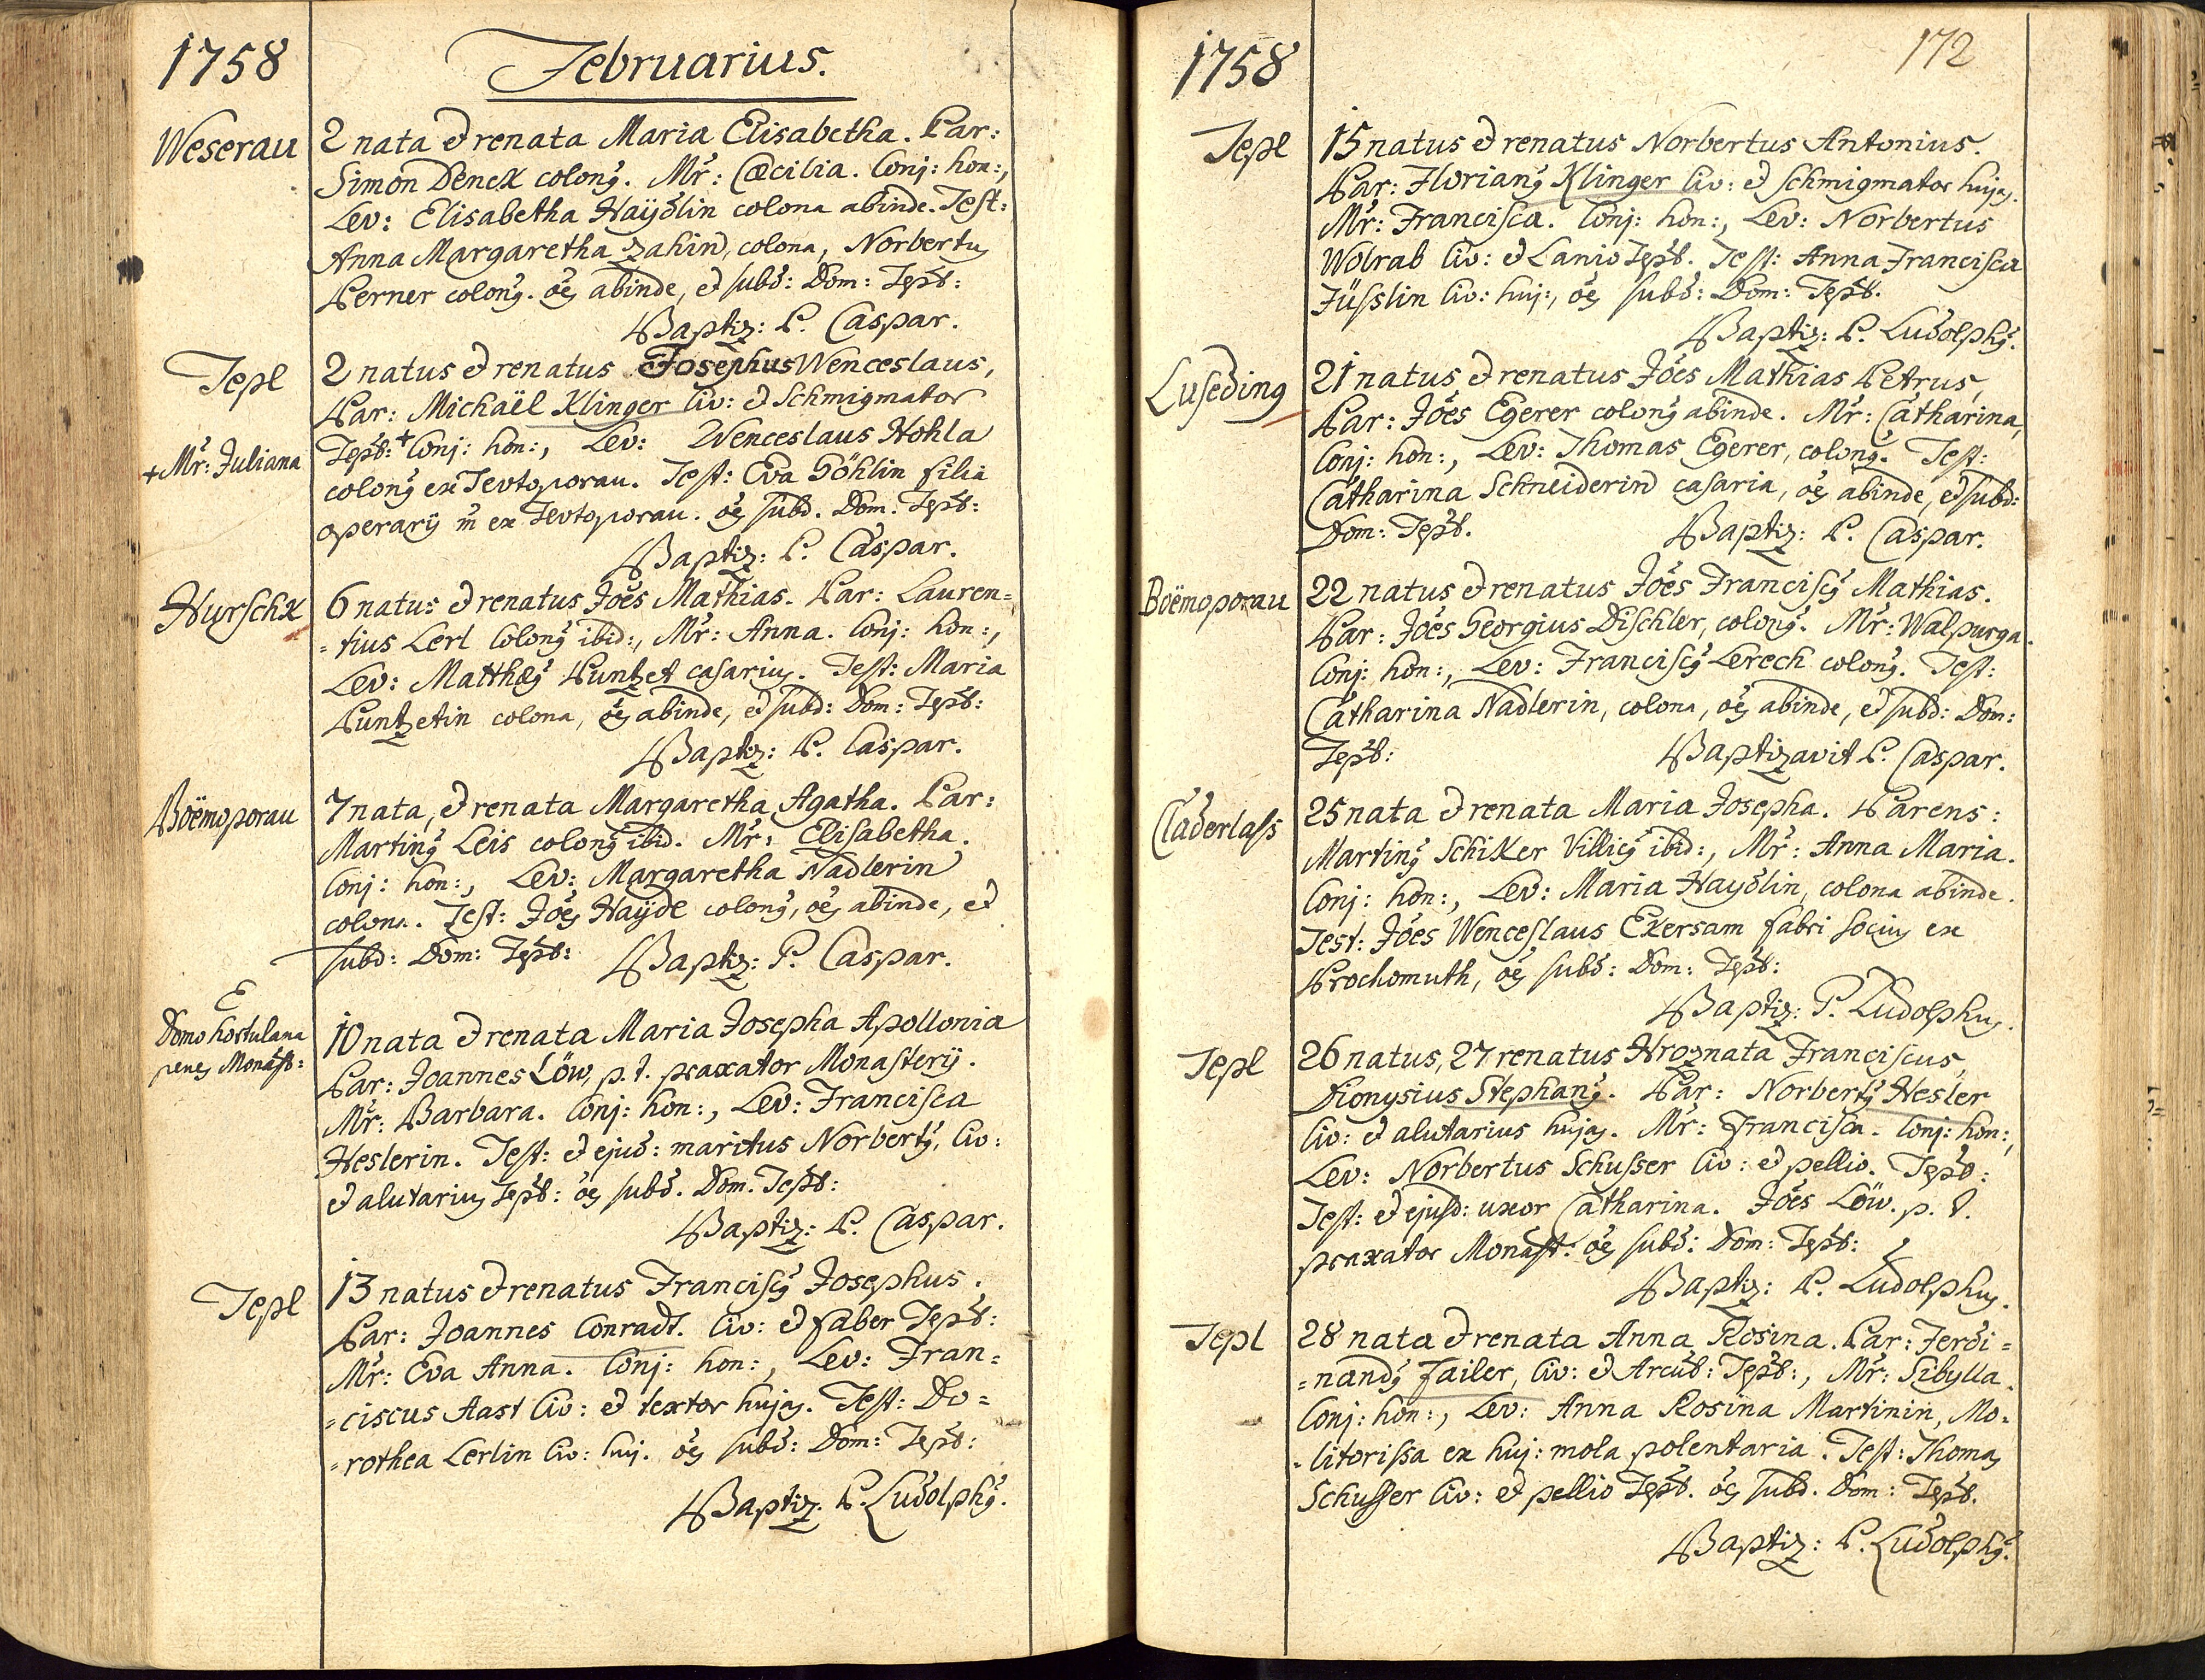 1758
Februarius.
Weserau
2 nata et renata Maria Elisabetha. Par:
Simon Denck colonꝰ. Mr̃: Cœcilia. Conj: hon:,
Lev: Elisabetha Haÿdlin colona abinde. Test:
Anna Margaretha Zahin, colona, Norbertꝰ
Perner colonꝰ. oẽs abinde, et subd: Dom: Tepl:
Baptiz: P. Caspar.
Tepl
2 natus et renatus Josephus Wenceslaus,
Par: Michaël Klinger Civ: et Schmigmator
+ Mr̃: Juliana
Tepl: + Conj: hon:, Lev: Wenceslaus Hohla
colonꝰ ex Tevtoporau. Test: Eva Göhlin filia
operarij m̃ ex Tevtoporau. oẽs subd. Dom: Tepl:
Baptiz: P. Caspar.
Hurschk
6 natus et renatus Joẽs Mathias. Par: Lauren=
=tius Lerl Colonꝰ ibid:, Mr̃: Anna. Conj: hon:,
Lev: Matthæꝰ Puntzet casariꝰ. Test: Maria
Puntzetin colona, oẽs abinde, et subd: Dom: Tepl:
Baptiz: P. Caspar.
Boëmoporau
7 nata, et renata Margaretha Agatha. Par:
Martinꝰ Leis colonꝰ ibid. Mr̃: Elisabetha.
Conj: hon:, Lev: Margaretha Nadlerin
colona. Test: Joẽs Haÿdl colonꝰ, oẽs abinde, et
subd: Dom: Tepl: Baptiz: P. Caspar.
E
Domo hortulana
penes Monast:
10 nata et renata Maria Josepha Apollonia
Par: Joannes Löw, p. t. praxator Monasterij.
Mr̃: Barbara. Conj: hon:, Lev: Francisca
Heslerin. Test: et ejud: maritus Norbertꝰ, Civ:
et alutariꝰ Tepl: oẽs subd. Dom. Tepl:
Baptiz: P. Caspar.
Tepl
13 natus et renatus Franciscꝰ Josephus.
Par: Joannes Conradt. Civ: et faber Tepl:
Mr̃: Eva Anna. Conj: hon:, Lev: Fran=
=ciscus Aast Civ: et textor hujas. Test: Do=
=rothea Lerlin Civ: huj. oẽs subd: Dom: Tepl:
Baptiz: P. Ludolphꝰ.
1758
172
Tepl
15 natus et renatus Norbertus Antonius.
Par: Florianꝰ Klinger Civ: et Schmigmator hujas.
Mr̃: Francisca. Conj: hon:, Lev: Norbertus
Wolrab Civ: et Lanio Tepl. Test: Anna Francisca
Füsslin Civ: huj:, oẽs subd: Dom: Tepl.
Baptiz: P. Ludolphꝰ.
Luseding
21 natus et renatus Joẽs Mathias Petrus,
Par: Joẽs Egerer colonꝰ abinde. Mr̃: Catharina,
Conj: hon:, Lev: Thomas Egerer, colonꝰ. Test:
Catharina Schneiderin casaria, oẽs abinde, et subd:
Dom: Tepl. Baptiz: P. Caspar.
Boëmoporau
22 natus et renatus Joẽs Franciscꝰ Mathias.
Par: Joẽs Georgius Dischler, colonꝰ. Mr̃: Walpurga.
Conj: hon:, Lev: Franciscꝰ Lerech colonꝰ. Test:
Catharina Nadlerin, colona, oẽs abinde, et subd: Dom:
Tepl: Baptizavit P. Caspar.
Claderlass
25 nata et renata Maria Josepha. Parens:
Martinꝰ Schiker Villicꝰ ibid:, Mr̃: Anna Maria.
Conj: hon:, Lev: Maria Haydlin, colona abinde.
Test: Joẽs Wenceslaus Exersam fabri sociꝰ ex
Prochomuth, oẽs subd: Dom: Tepl:
Baptiz: P. Ludolphꝰ.
Tepl
26 natus, 27 renatus Hroznata Franciscus,
Dionysius Stephanꝰ. Par: Norbertꝰ Hesler
Civ: et alutarius hujas. Mr̃: Francisca. Conj: hon:,
Lev: Norbertus Schusser Civ: et pellio. Tepl:
Test: et ejusd: uxor Catharina. Joẽs Löw. p. t.
praxator Monast: oẽs subd: Dom: Tepl:
Baptiz: P. Ludolphꝰ.
Tepl
28 nata et renata Anna Rosina. Par: Ferdi=
=nandꝰ Failer, Civ: et Arcul: Tepl:, Mr̃: Sibylla.
Conj: hon:, Lev: Anna Rosina Martinin, Mo=
=litorissa ex huj: mola polentaria. Test: Thomas
Schusser Civ: et pellio Tepl. oẽs subd. Dom: Tepl.
Baptiz: P. Ludolphꝰ.